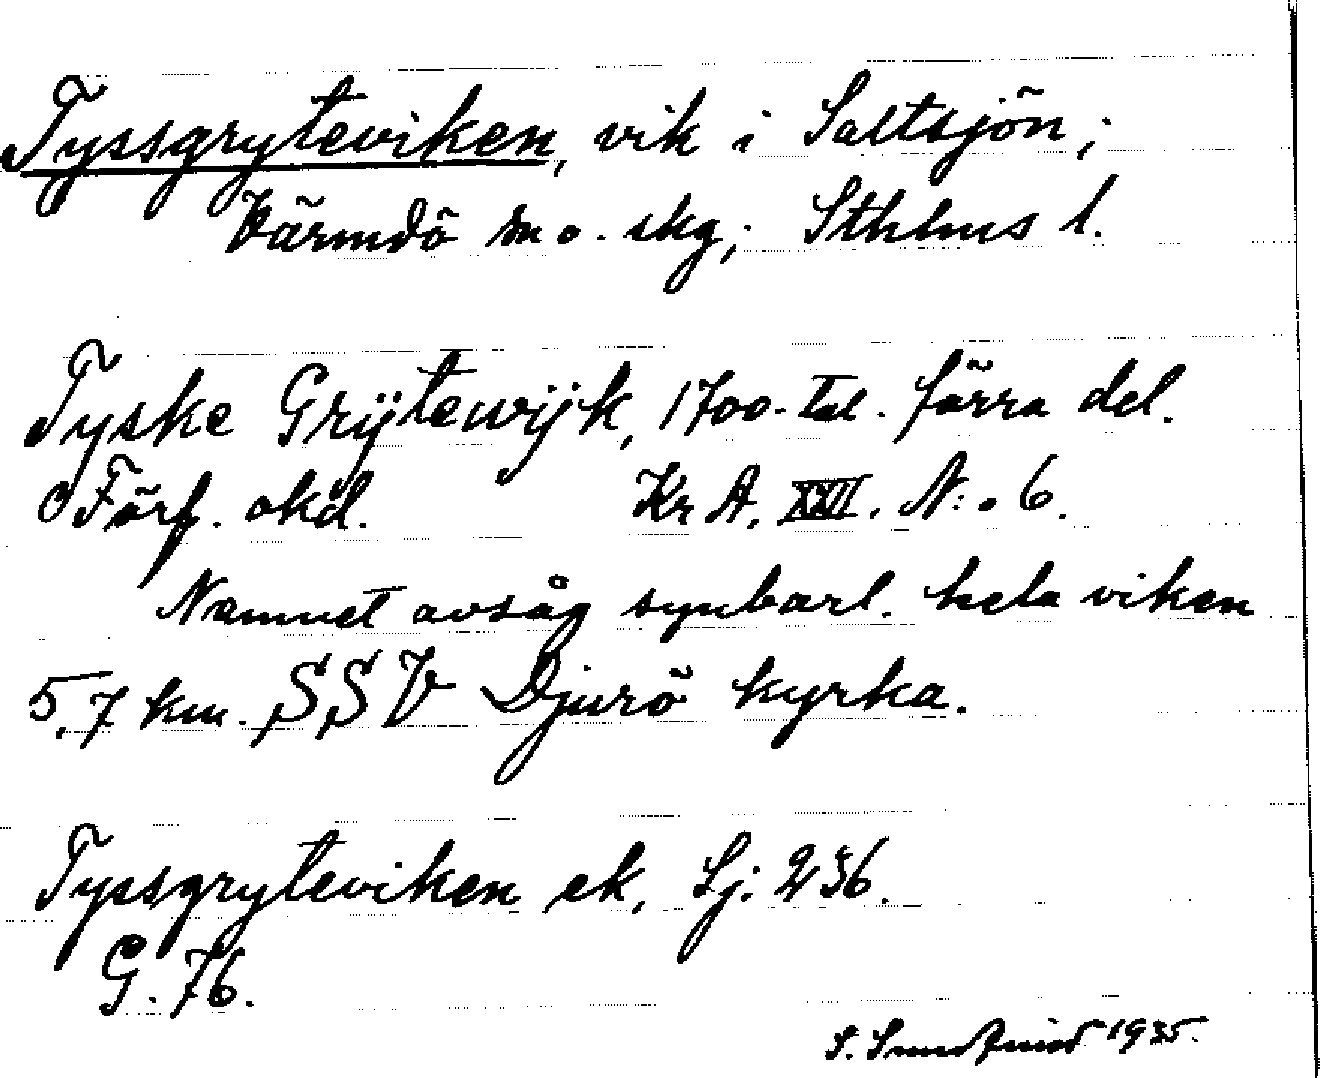 Tyssgryteviken, vik i Saltsjön;
Värmdö sn o. skg; Sthlms l.
Tyske Grÿtewijk, 1700-tal. förra del.
Förf. okd. Kr A. XXII. N:o 6.
Namnet avsåg synbarl. hela viken
5,7 km. SSV Djurö kyrka.
Tyssgryteviken ek. Sj: 236.
G. 76.
S. 1935.